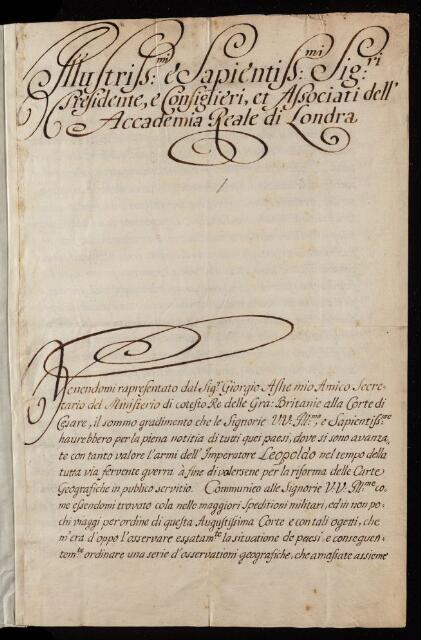 Illustriss:mi e Sapientiss:mi Sig:ri
Presidente, e Consiglieri, et Associati dell'
Accademia Reale di Londra
Venendomi rapresentato dal Sig.r Giorgio Ashe mio Amico Secre-
tario del Ministerio di cotesto Re delle Gra: Britanie alla Corte di
Cesare, il sommo gradimento che le Signorie V.V. Ill:me, e Sapientiss:me
haurebbero per la piena notitia di tutti quei paesi, dove si sono avanza,
te con tanto valore l'armi dell'Imperatore Leopoldo nel tempo della
tutta via fervente guerra à fine di valersene per la riforma delle Carte
Geografiche in publico servitio. Communico alle Signorie V.V. Ill:me co,
me essendomi trovato colà nelle maggiori Speditioni militari, ed in non po,
chi viaggi per ordine di questa Augustissima Corte e con tali ogetti, che
m'era d'oppo l'osservare esatam:te la situatione de paesi, e conseguen,
tem:te ordinare una serie d'osservationi geografiche, che amassate assieme